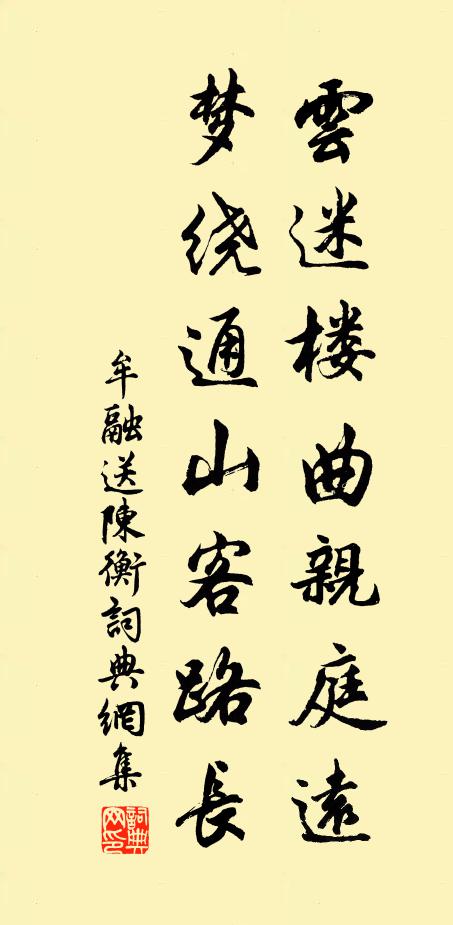 雲迷楼曲親庭遠
梦绕通山客路長
牟融送陳衡詞典網集
詞典
网印